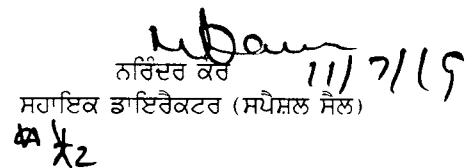 ਨਰਿੰਦਰ ਕੌਰ 11/7/19
ਸਹਾਇਕ ਡਾਇਰੈਕਟਰ (ਸਪੈਸ਼ਲ ਸੈਲ)